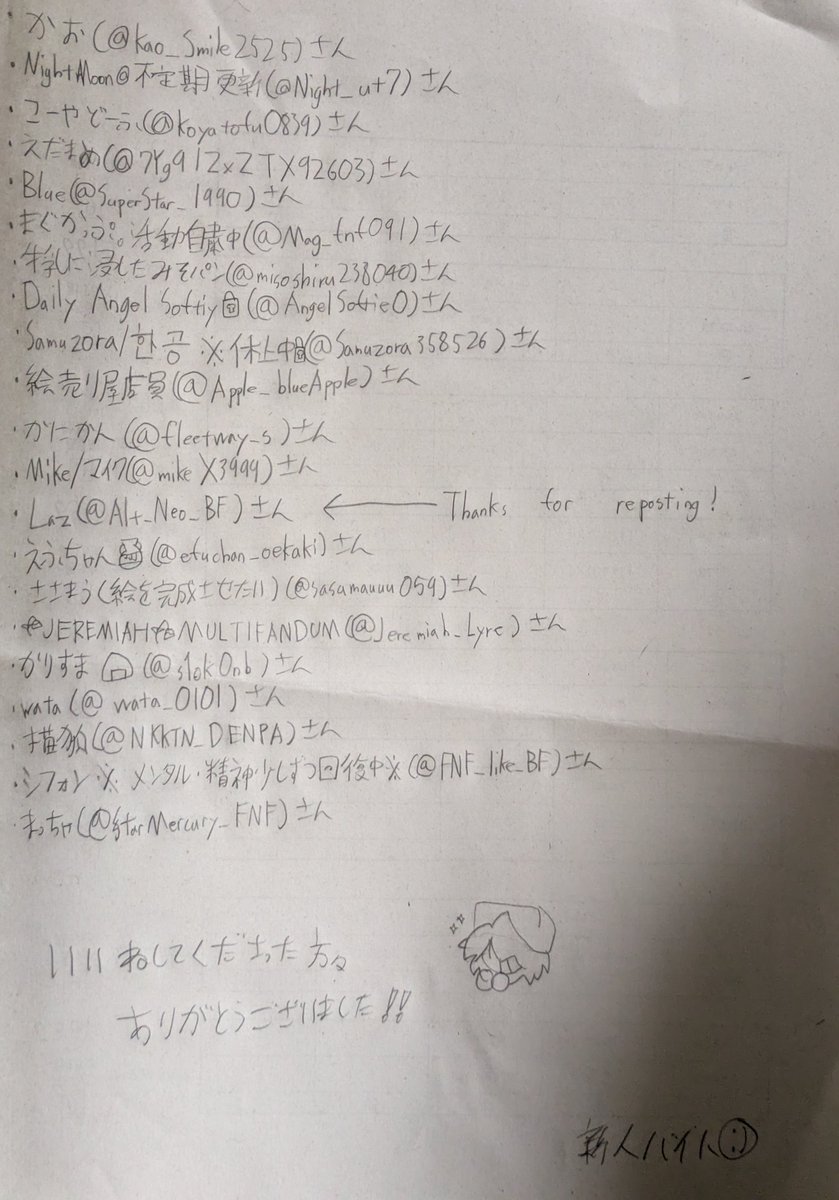 ・かお(@kao_Smile2525)さん
・NightMoon@不定期更新(@Night_ut7)さん
・コーやどーふ(@koyatofu0839)さん
・えだまめ(@7Yg9IZxZTX92603)さん
・Blue(@SuperStar_1990)さん
・まぐかっぷ。活動自粛中(@Mag_tnt091)さん
・牛乳に浸したみそパン(@misoshiru238040)さん
・Daily Angel Softiy(@AngelSoftie0)さん
・Samuzora/한공 ※休止中(@Samuzora358526)さん
・絵売り屋店員(@Apple_blueApple)さん
・かにかん(@fleetway_s)さん
・Mike/マイク(@mikeX3999)さん
・Laz(@Alt_Neo_BF)さん ← Thanks for reposting!
・えふちゃん(@efuchan_oekaki)さん
・ささまう(絵を完成させたい)(@sasamauuu059)さん
・JEREMIAH MULTIFANDUM(@Jeremiah_Lyre)さん
・かりすま(@s1ok0nb)さん
・wata(@wata_0101)さん
・(@NKKTN_DENPA)さん
・シフォン※メンタル・精神少しずつ回復中※(@FNF_like_BF)さん
・まっちゃ(@StarMercury_FNF)さん
いいねしてくださった方々
ありがとうございました!!
新人バイト:)